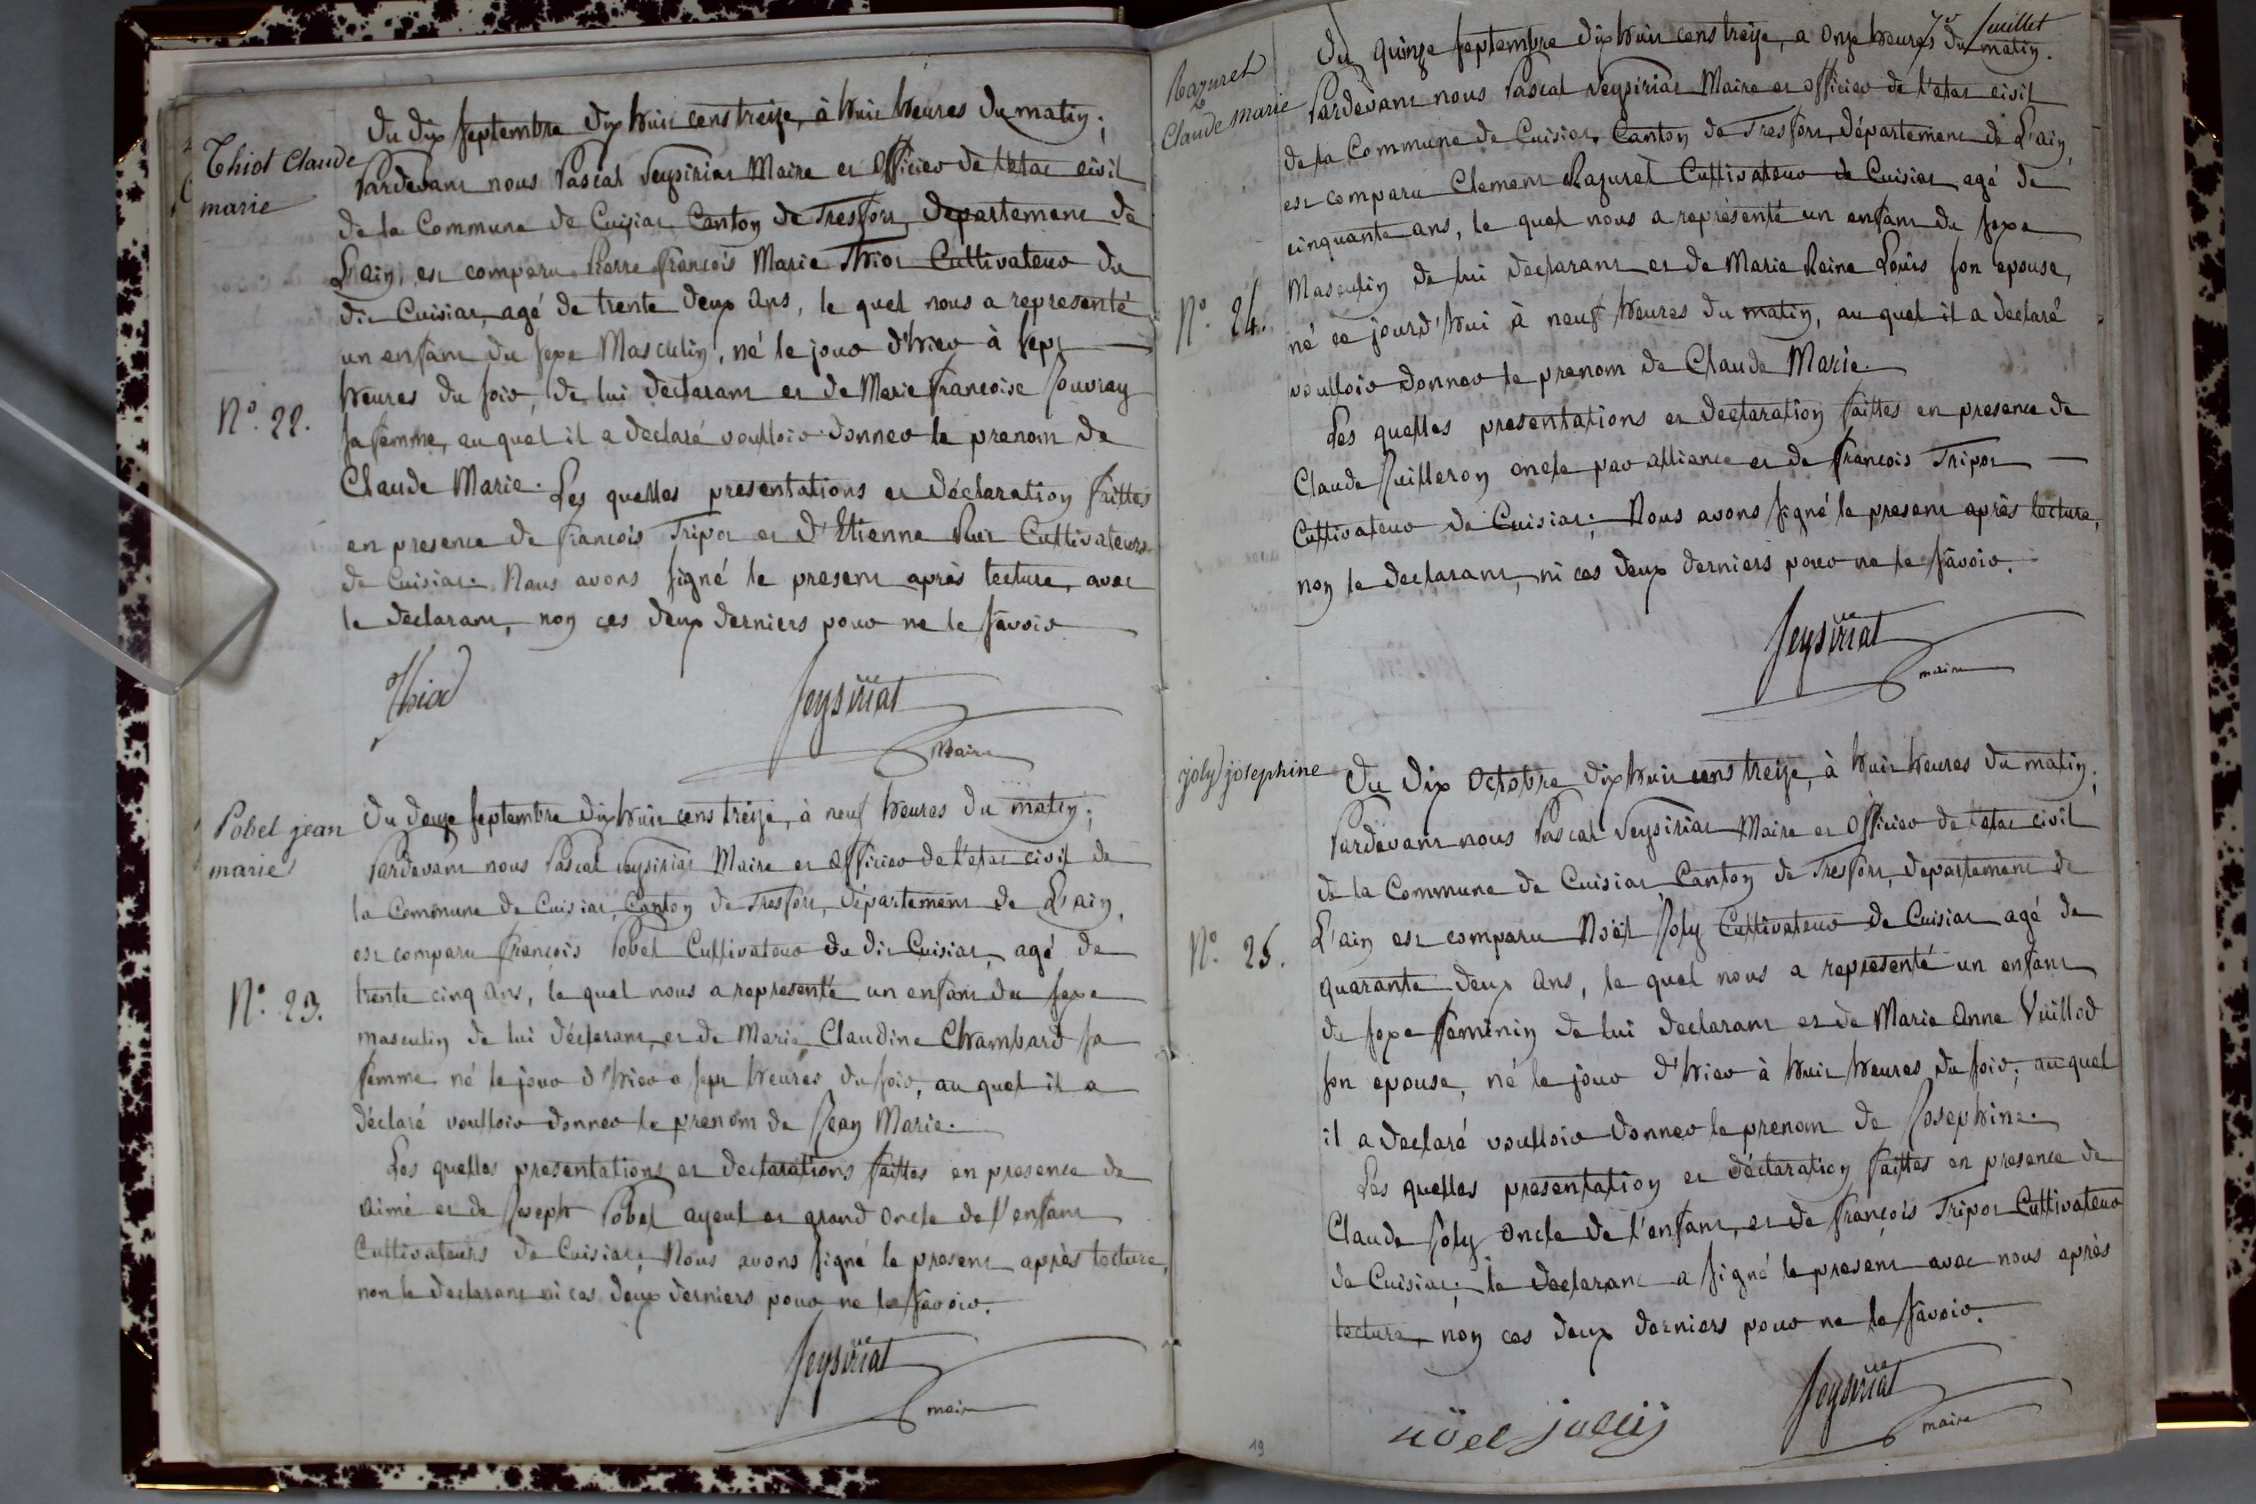 Thiot Claude
marie
N.o 22.
Du dix septembre dix huit cens treize, à huit heures du matin;
Pardevant nous Pascal Seysiriat Maire et Officier de l'etat civil
de la Commune de Cuisiat, Canton de Tresfort, departement de
L'ain, est comparu Pierre françois Marie Thiot Cultivateur du
dit Cuisiat, agé de trente deux ans, le quel nous a representé
un enfant du sexe Masculin, né le jour d'hier à sept
heures du soir, de lui declarant et de Marie françoise Jouvray
sa femme, au quel il a declaré voulloir donner le prenom de
Claude Marie. Les quelles presentations et déclaration faittes
en presence de françois Tripot et d'Etienne Puit Cultivateurs
de Cuisiat. Nous avons signé le present après lecture, avec
le declarant, non ces deux derniers pour ne le savoir
Thiot
Seysiriat
Maire
Pobel jean
marie
N.o 23.
Du douze septembre dix huit cens treize, à neuf heures du matin;
Pardevant nous Pascal Seysiriat Maire et Officier de l'etat civil de
la Commune de Cuisiat, Canton de Tresfort, département de L'ain,
est comparu françois Pobel Cultivateur du dit Cuisiat, agé de
trente cinq ans, le quel nous a representé un enfant du sexe
masculin de lui déclarant, et de Marie Claudine Chambard sa
femme né le jour d'hier a sept heures du soir, au quel il a
déclaré voulloir donner le prenom de Jean Marie.
Les quelles presentations et declarations faittes en presence de
Aimé et de Joseph Pobel ayeul et grand oncle de l'enfant
Cultivateurs de Cuisiat; Nous avons signé le present après lecture,
non le declarant ni ces deux derniers pour ne le savoir.
Seysiriat
maire
Razurel
Claude marie
N.o 24.
7r juillet
Du quinze septembre dix huit cens treize, a onze heures du matin.
Pardevant nous Pascal Seysiriat Maire et Officier de l'etat civil
de la Commune de Cuisiat, Canton de Tresfort, département de L'ain,
est comparu Clement Razurel Cultivateur de Cuisiat agé de
cinquante ans, le quel nous a représenté un enfant du sexe
Masculin de lui declarant et de Marie Reine Louis son epouse,
né ce jourd'hui à neuf heures du matin, au quel il a declaré
voulloir donner le prenom de Claude Marie.
Les quelles presentations et declaration faittes en presence de
Claude Guilleron oncle par alliance et de françois Tripot
Cultivateur de Cuisiat; Nous avons signé le present après lecture,
non le declarant, ni ces deux derniers pour ne le savoir.
Seysiriat
maire
joly josephine
N.o 25.
Du dix Octobre dix huit cens treize, à huit heures du matin;
Pardevant nous Pascal Seysiriat Maire et Officier de l'etat civil
de la Commune de Cuisiat, Canton de Tresfort, departement de
L'ain est comparu Noël Joly Cultivateur de Cuisiat agé de
quarante deux ans, le quel nous a representé un enfant
du sexe feminin de lui declarant et de Marie Anne Vuillod
son epouse, né le jour d'hier à huit heures du soir; au quel
il a declaré voulloir donner le prenom de Josephine.
Les quelles presentation et déclaration faittes en presence de
Claude Joly oncle de l'enfant, et de françois Tripot Cultivateur
de Cuisiat; le declarant a signé le present avec nous après
lecture, non ces deux derniers pour ne le savoir.
nöel jollÿ
Seysiriat
maire
19